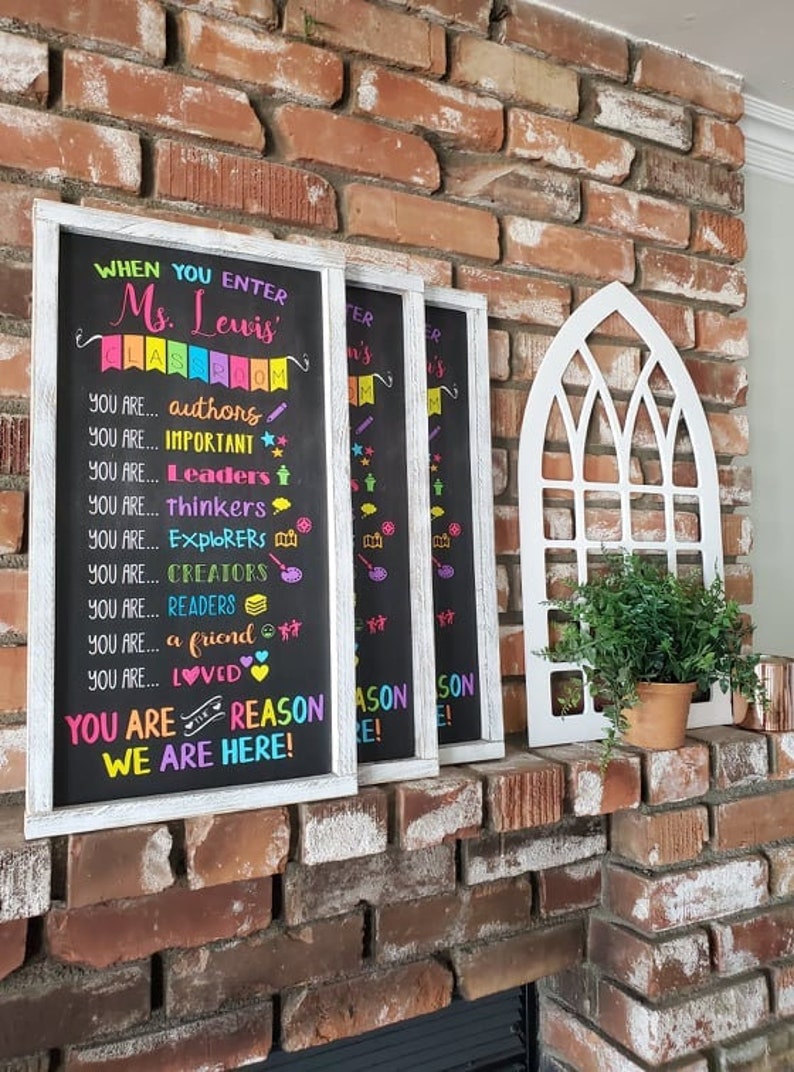 WHEN YOU ENTER
Ms. Lewis'
CLASSROOM
YOU ARE... authors
YOU ARE... IMPORTANT
YOU ARE... Leaders
YOU ARE... thinkers
YOU ARE... EXPLORERS
YOU ARE... CREATORS
YOU ARE... READERS
YOU ARE... a friend
YOU ARE... LOVED
YOU ARE THE REASON
WE ARE HERE!